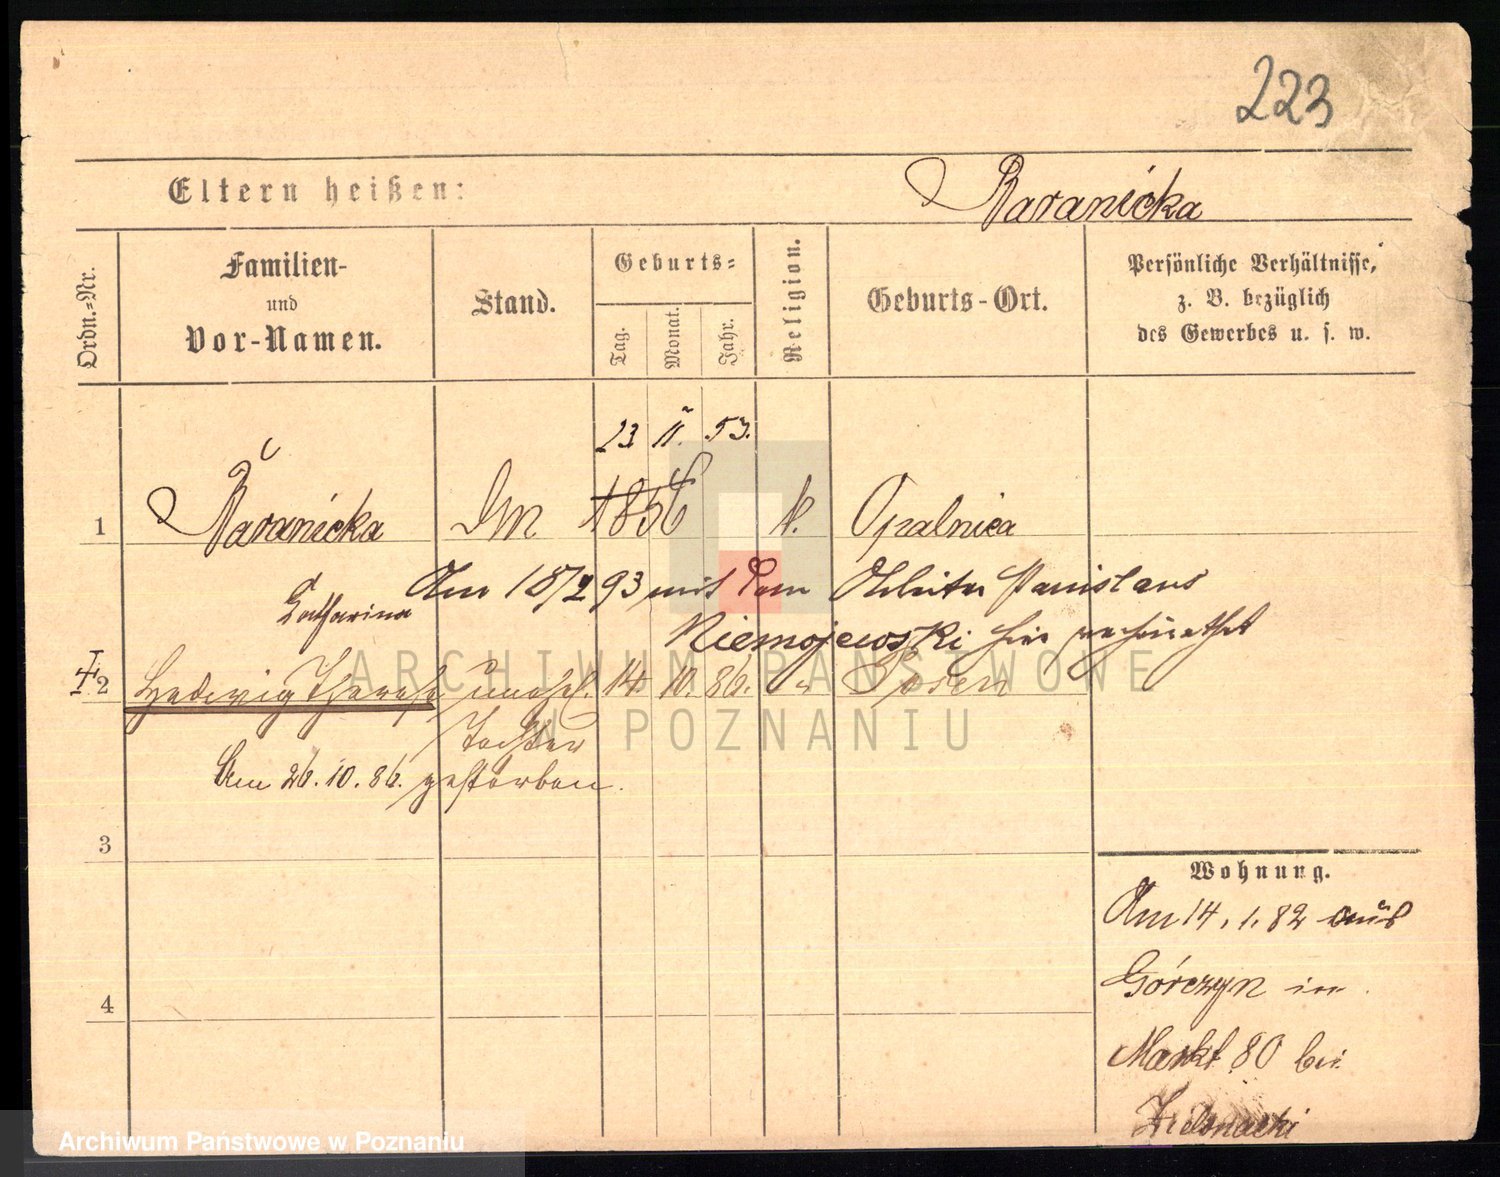 223
Eltern heißen: Baranicka
Ordn.-Nr.
Familien-
und
Vor-Namen.
Stand.
Geburts-
Tag.
Monat.
Jahr.
Religion.
Geburts-Ort.
Persönliche Verhältnisse,
z. B. bezüglich
des Gewerbes u. s. w.
23 11. 53.
1 Baranicka 1856 k. Opalnica
Catharina
Am 18/2 93 mit dem Arbeiter Stanislaus
Niemojewski hier verheirathet
2 Hedwig Therese unehel. 14 10. 86. " Posen
Tochter
Am 26. 10. 86. gestorben.
3
4
Wohnung.
Am 14. 1. 82 aus
Górczyn in
Markt 80 bei
Zielonacki
ARCHIWUM PAŃSTWOWE
W POZNANIU
Archiwum Państwowe w Poznaniu